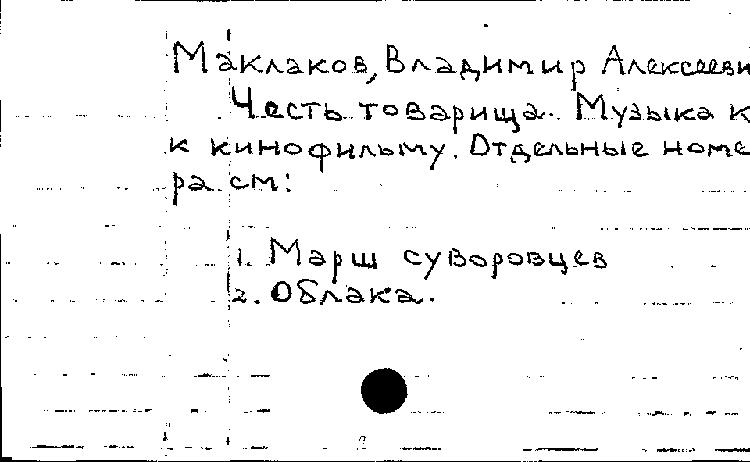 Маклаков, Владимир Алексееви
Честь товарища. Музыка к
к кинофильму. Отдельные номе
ра см:
1. Марш суворовцев
2. Облака.